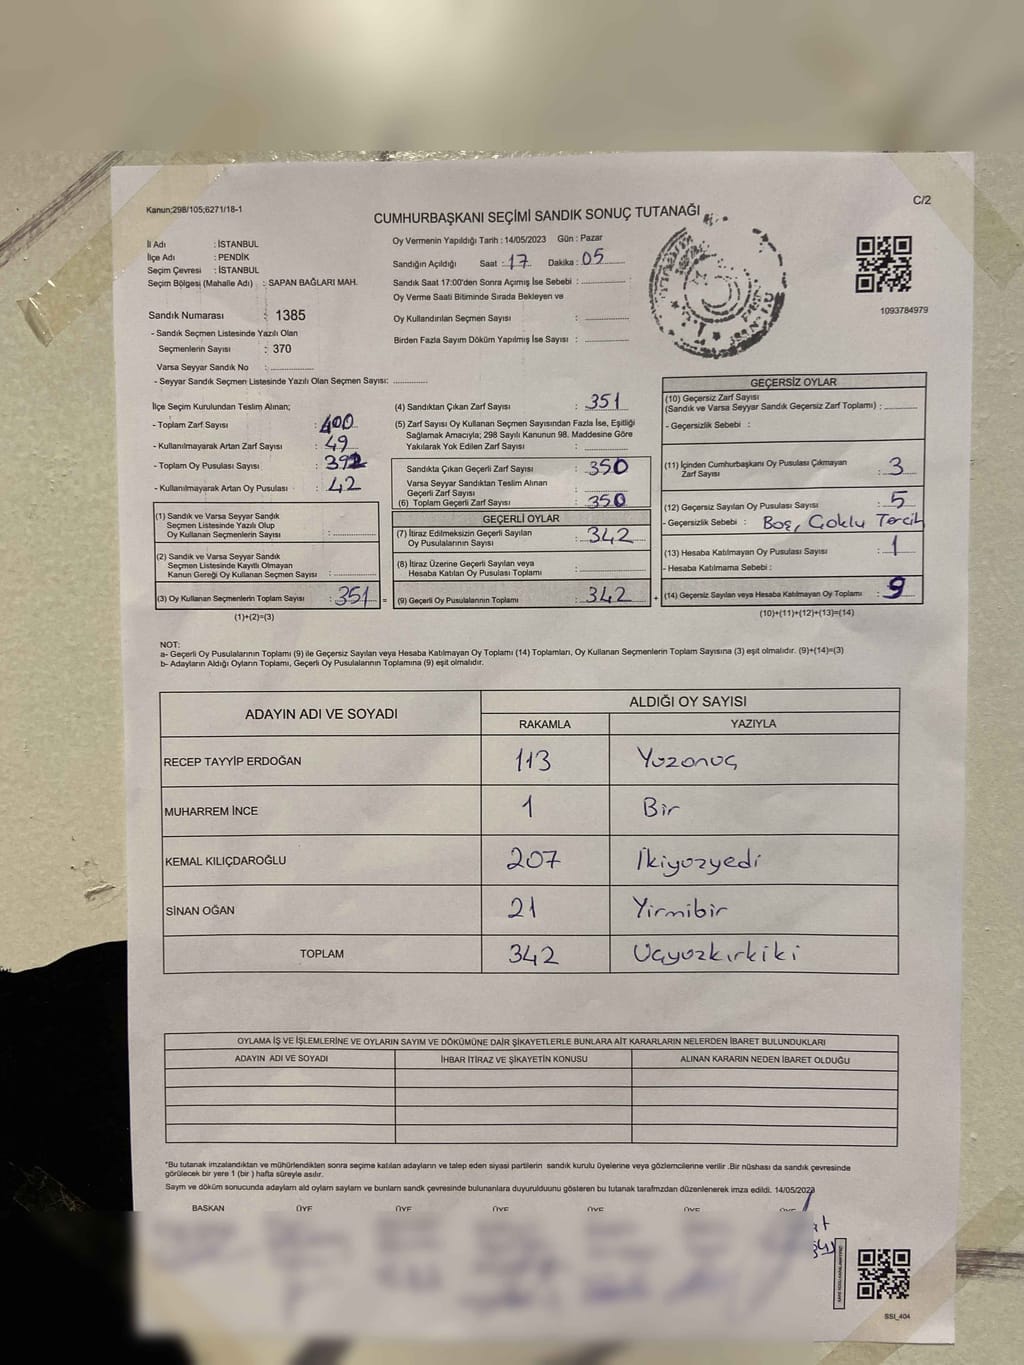 Kanun;298/105;6271/18-1
C/2
CUMHURBAŞKANI SEÇİMİ SANDIK SONUÇ TUTANAĞI
İl Adı : İSTANBUL
İlçe Adı : PENDİK
Seçim Çevresi : İSTANBUL
Seçim Bölgesi (Mahalle Adı) : SAPAN BAĞLARI MAH.
Sandık Numarası : 1385
- Sandık Seçmen Listesinde Yazılı Olan
Seçmenlerin Sayısı : 370
Varsa Seyyar Sandık No : ..............
- Seyyar Sandık Seçmen Listesinde Yazılı Olan Seçmen Sayısı: ............
Oy Vermenin Yapıldığı Tarih : 14/05/2023 Gün : Pazar
Sandığın Açıldığı Saat : 17 Dakika : 05
Sandık Saat 17:00'den Sonra Açımış İse Sebebi : ..............
Oy Verme Saati Bitiminde Sırada Bekleyen ve
Oy Kullandırılan Seçmen Sayısı : ..............
Birden Fazla Sayım Döküm Yapılmış İse Sayısı : ..............
1093784979
İlçe Seçim Kurulundan Teslim Alınan;
- Toplam Zarf Sayısı : 400
- Kullanılmayarak Artan Zarf Sayısı : 49
- Toplam Oy Pusulası Sayısı : 392
- Kullanılmayarak Artan Oy Pusulası : 42
(1) Sandık ve Varsa Seyyar Sandık
Seçmen Listesinde Yazılı Olup
Oy Kullanan Seçmenlerin Sayısı : ..............
(2) Sandık ve Varsa Seyyar Sandık
Seçmen Listesinde Kayıtlı Olmayan
Kanun Gereği Oy Kullanan Seçmen Sayısı : ..............
(3) Oy Kullanan Seçmenlerin Toplam Sayısı : 351 =
(1)+(2)=(3)
(4) Sandıktan Çıkan Zarf Sayısı : 351
(5) Zarf Sayısı Oy Kullanan Seçmen Sayısından Fazla İse, Eşitliği
Sağlamak Amacıyla; 298 Sayılı Kanunun 98. Maddesine Göre
Yakılarak Yok Edilen Zarf Sayısı : ..............
Sandıkta Çıkan Geçerli Zarf Sayısı : 350
Varsa Seyyar Sandıktan Teslim Alınan
Geçerli Zarf Sayısı : ..............
(6) Toplam Geçerli Zarf Sayısı : 350
GEÇERLİ OYLAR
(7) İtiraz Edilmeksizin Geçerli Sayılan
Oy Pusulalarının Sayısı : 342
(8) İtiraz Üzerine Geçerli Sayılan veya
Hesaba Katılan Oy Pusulası Toplamı : ..............
(9) Geçerli Oy Pusulalarının Toplamı : 342 +
GEÇERSİZ OYLAR
(10) Geçersiz Zarf Sayısı
(Sandık ve Varsa Seyyar Sandık Geçersiz Zarf Toplamı) : ............
- Geçersizlik Sebebi :
(11) İçinden Cumhurbaşkanı Oy Pusulası Çıkmayan
Zarf Sayısı : 3
(12) Geçersiz Sayılan Oy Pusulası Sayısı : 5
- Geçersizlik Sebebi : Boş, Çoklu Tercih
(13) Hesaba Katılmayan Oy Pusulası Sayısı : 1
- Hesaba Katılmama Sebebi :
(14) Geçersiz Sayılan veya Hesaba Katılmayan Oy Toplamı : 9
(10)+(11)+(12)+(13)=(14)
NOT:
a- Geçerli Oy Pusulalarının Toplamı (9) ile Geçersiz Sayılan veya Hesaba Katılmayan Oy Toplamı (14) Toplamları, Oy Kullanan Seçmenlerin Toplam Sayısına (3) eşit olmalıdır. (9)+(14)=(3)
b- Adayların Aldığı Oyların Toplamı, Geçerli Oy Pusulalarının Toplamına (9) eşit olmalıdır.
ADAYIN ADI VE SOYADI ALDIĞI OY SAYISI
RAKAMLA YAZIYLA
RECEP TAYYİP ERDOĞAN 113 Yuzonuç
MUHARREM İNCE 1 Bir
KEMAL KILIÇDAROĞLU 207 İkiyuzyedi
SİNAN OĞAN 21 Yirmibir
TOPLAM 342 Uçyuzkırkiki
OYLAMA İŞ VE İŞLEMLERİNE VE OYLARIN SAYIM VE DÖKÜMÜNE DAİR ŞİKAYETLERLE BUNLARA AİT KARARLARIN NELERDEN İBARET BULUNDUKLARI
ADAYIN ADI VE SOYADI İHBAR İTİRAZ VE ŞİKAYETİN KONUSU ALINAN KARARIN NEDEN İBARET OLDUĞU
*Bu tutanak imzalandıktan ve mühürlendikten sonra seçime katılan adayların ve talep eden siyasi partilerin sandık kurulu üyelerine veya gözlemcilerine verilir .Bir nüshası da sandık çevresinde
görülecek bir yere 1 (bir ) hafta süreyle asılır.
Sayım ve döküm sonucunda adayların ald oyların sayları ve bunların sandk çevresinde bulunanlara duyurulduunu gösteren bu tutanak tarafımzdan düzenlenerek imza edildi. 14/05/2023
BAŞKAN ÜYE ÜYE ÜYE ÜYE ÜYE ÜYE
SSI_404